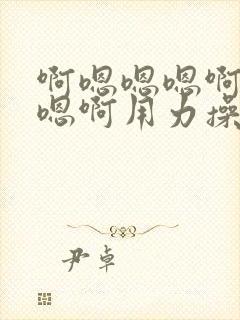 啊嗯嗯嗯啊
嗯啊用力操
尹卓